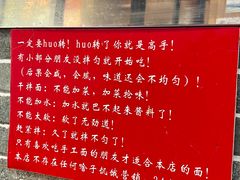 一定要huo转！huo转了你就是高手！
有小部分朋友没拌匀就开始吃！
（后果会咸，会腻，味道还会不均匀）！
干拌面：不能加菜，加菜抢味！
不能加水：加水就巴不起来酱料了！
不能太软：软了无劲道！
赶紧拌：久了就拌不匀了！
只有喜欢吃手工面的朋友才适合本店的面！
本店不存在任何啥子饥饿营销